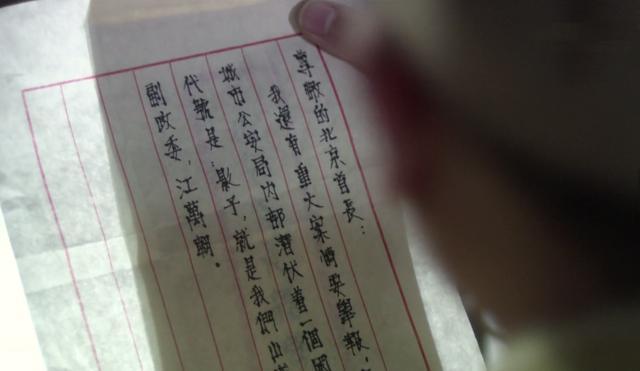 尊敬的北京首長：
我還有重大案情要舉報，
城市公安局内部潛伏着一個國
代號是：影子，就是我們山
副政委，江萬朝。